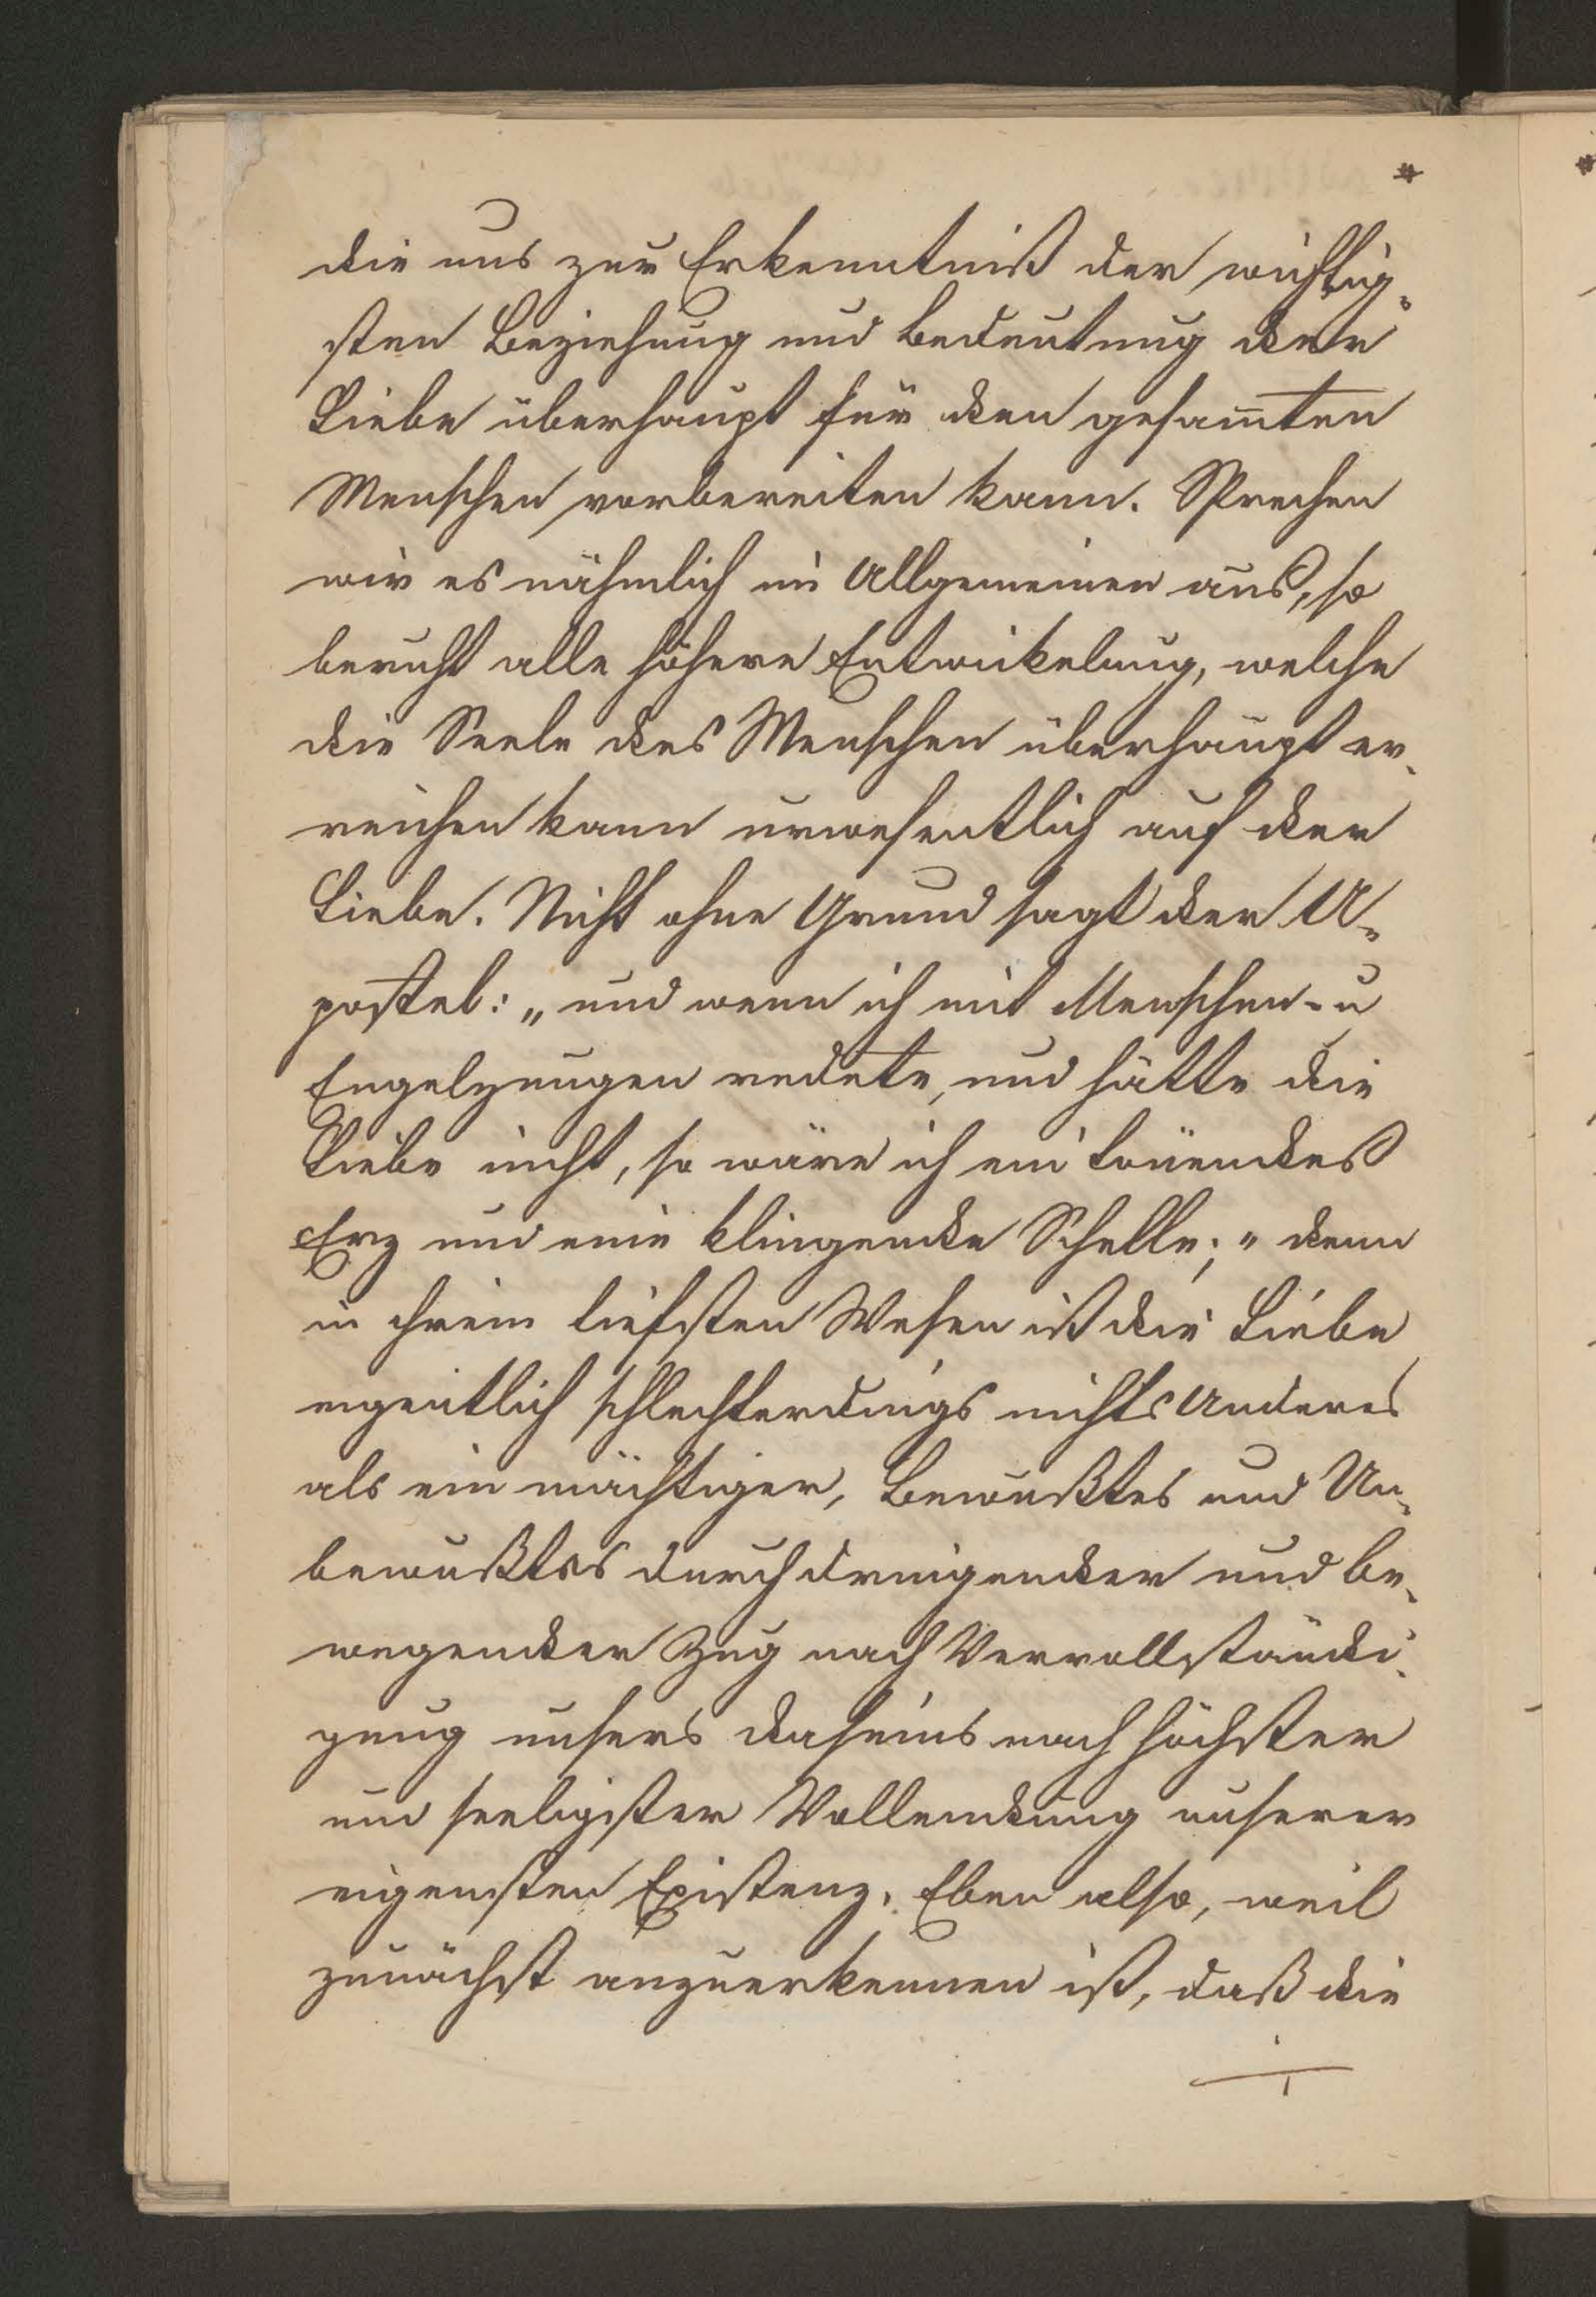 *
die uns zur Erkenntniß der wichtig„
sten Beziehung und Bedeutung der
Liebe überhaupt für den gesam̅ten
Menschen vorbereiten kann. Sprechen
wir es nähmlich im Allgemeinen aus, so
beruht alle höhere Entwickelung, welche
die Seele des Menschen überhaupt er„
reichen kann urwesentlich auf der
Liebe. Nicht ohne Grund sagt der A„
postel: „und wenn ich mit Menschen- u
Engelzungen redete, und hätte die
Liebe nicht, so wäre ich ein tönendes
Erz und eine klingende Schelle;" denn
in ihrem tiefsten Wesen ist die Liebe
eigentlich schlechterdings nichts Anderes
als ein mächtiger, Bewußtes und Un„
bewußtes durchdringender und be„
wegender Zug nach Vervollständi„
gung unsers Daseins nach höchster
und seeligster Vollendung unserer
eigensten Existenz. Eben also, weil
zunächst anzuerkennen ist, daß die